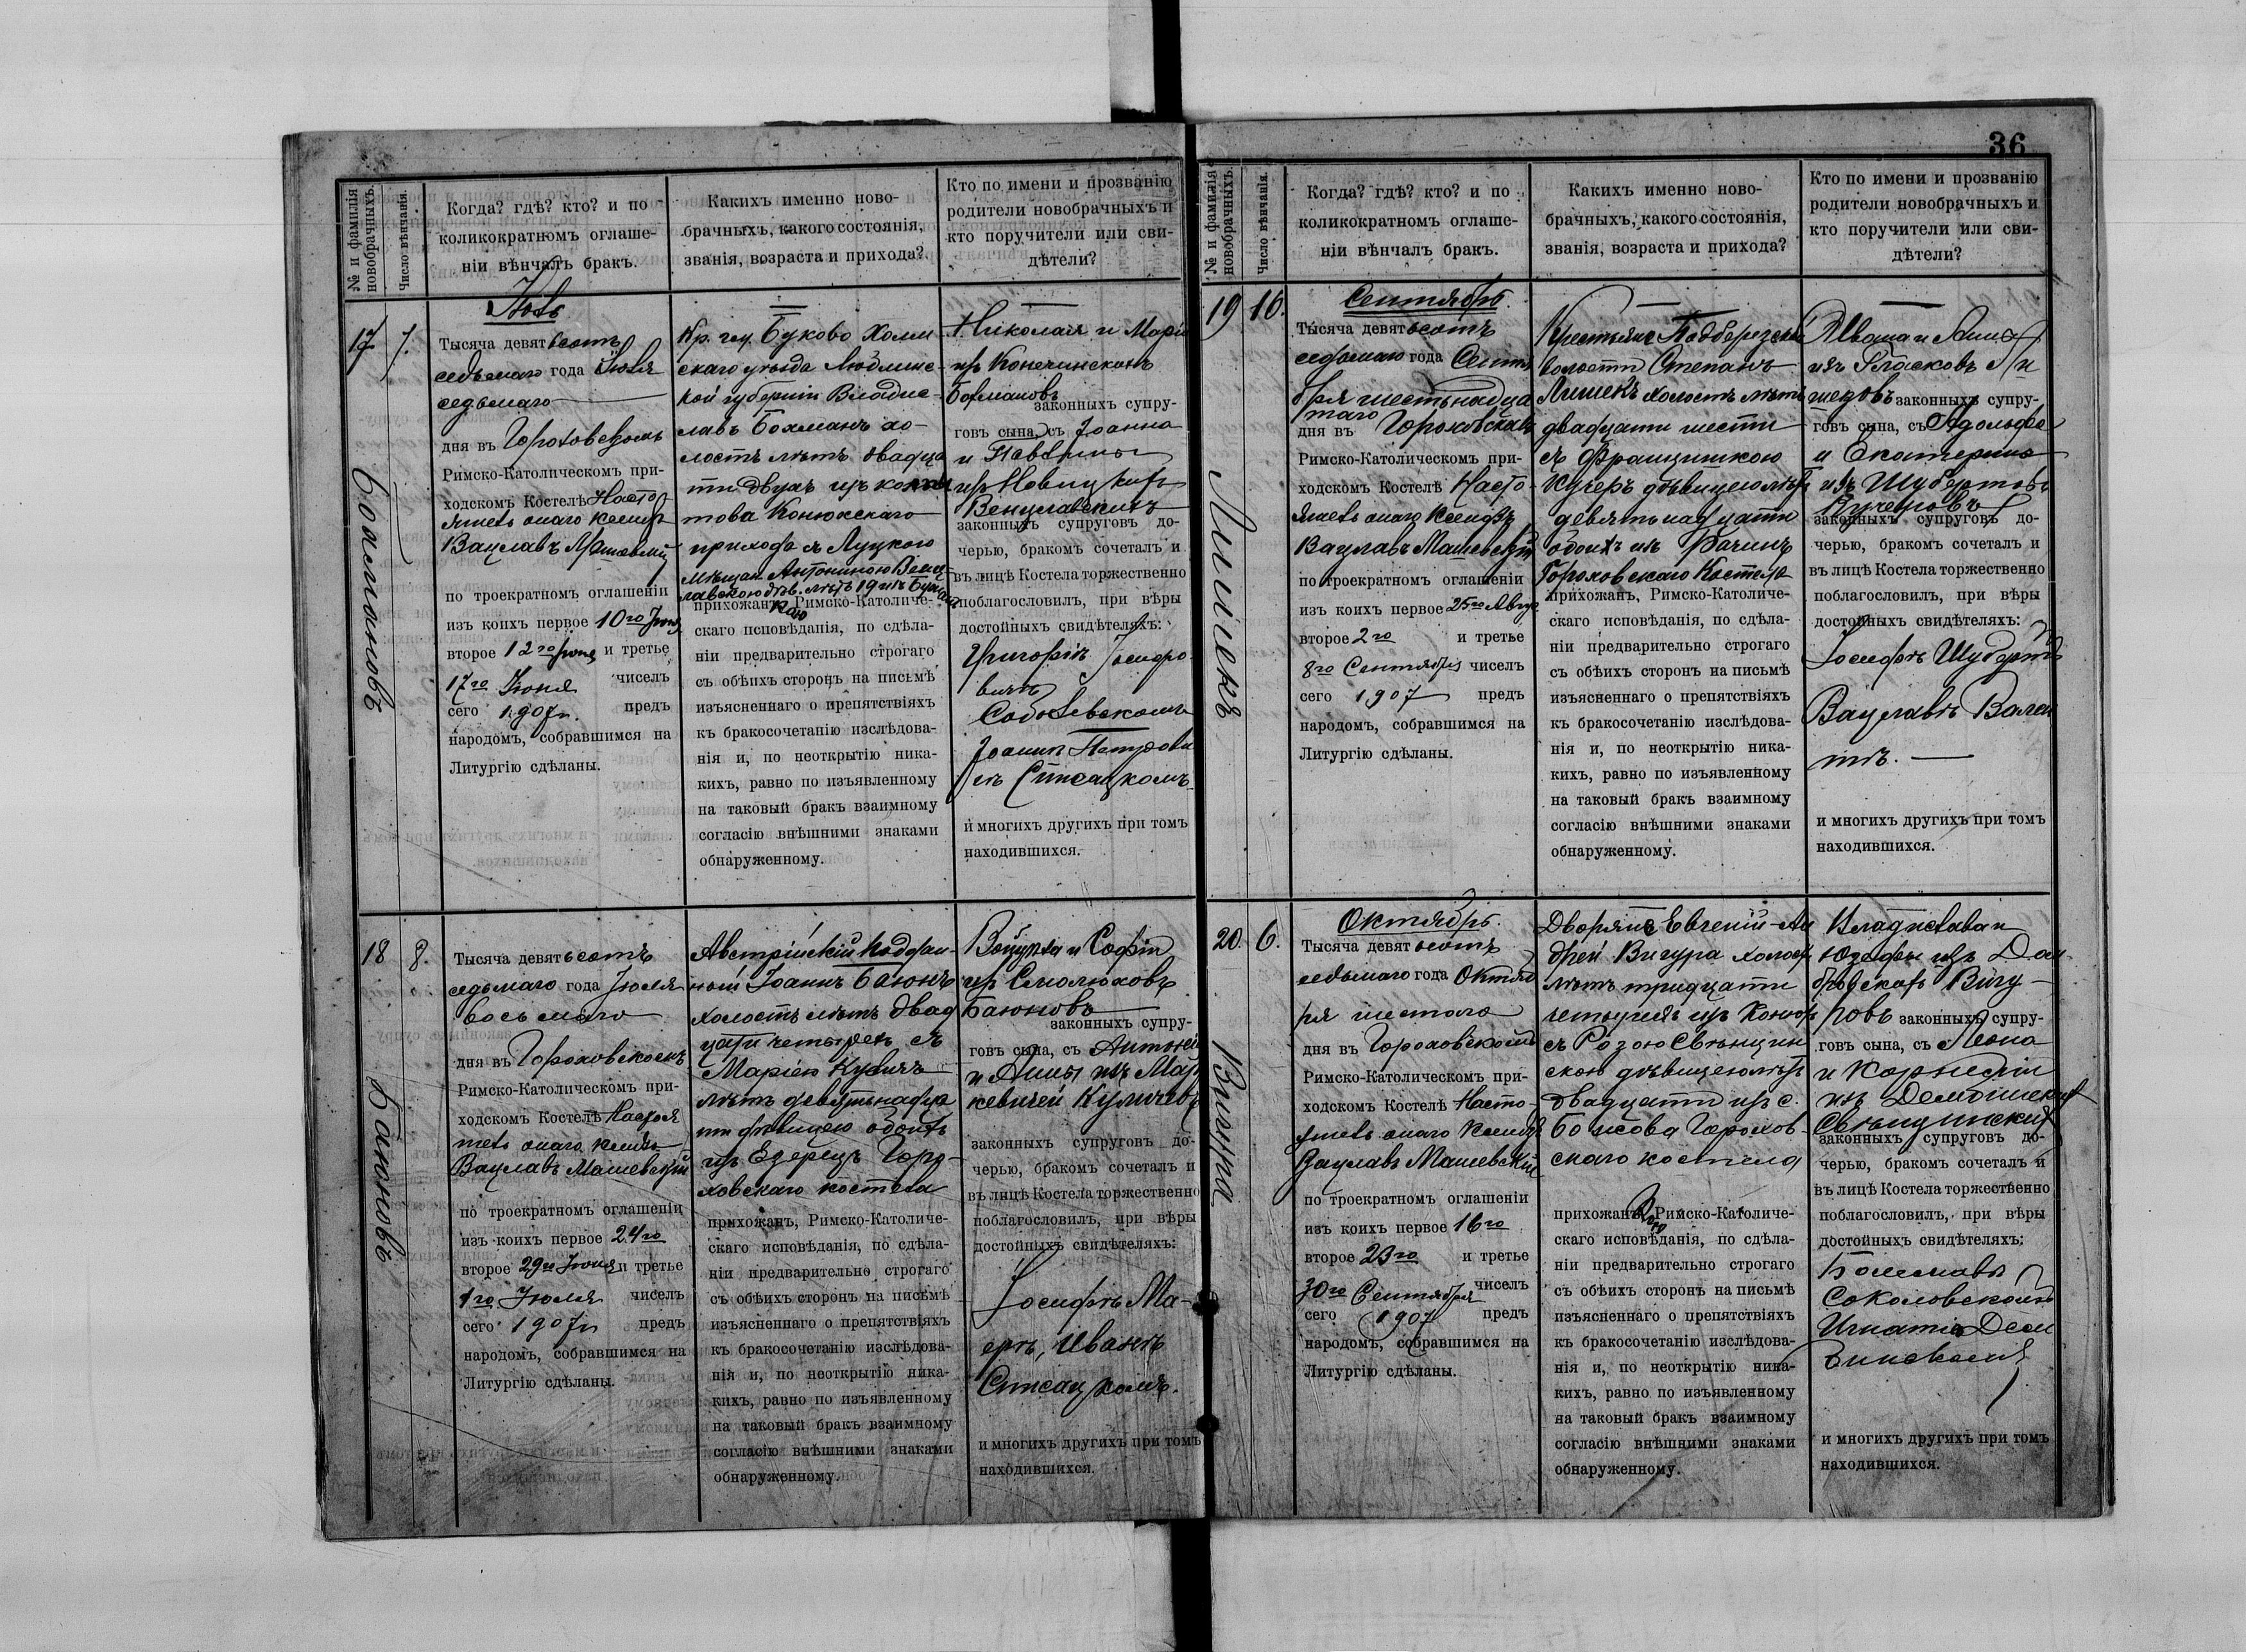 36
№ и фамилія новобрачныхъ.
Число вѣнчанія.
Когда? гдѣ? кто? и по
коликократномъ оглаше-
ніи вѣнчалъ бракъ.
Какихъ именно ново-
брачныхъ, какого состоянія,
званія, возраста и прихода?
Кто по имени и прозванію
родители новобрачныхъ и
кто поручители или сви-
дѣтели?
17
7.
Тысяча девятьсотъ
седьмаго года Іюля
седьмаго
дня въ Гороховскомъ
Римско-Католическомъ при-
ходскомъ Костелѣ Насто
ятель онаго Ксендзъ
Вацлавъ Машевскій
по троекратномъ оглашеніи
изъ коихъ первое 10го Іюня
второе 12го Іюня и третье
17го Іюня чиселъ
сего 1907 г. предъ
народомъ, собравшимся на
Литургію сдѣланы.
Кр. гм. Буково Холм
скаго уѣзда Люблинс-
кой губерніи Владис-
лавъ Бохманъ хо-
лостъ лѣтъ двадца
ти двухъ изъ
това Конюхскаго
прихода съ Луцкою
мѣщан. Антониною Венц
лавскою дѣв. лѣтъ 19 изъ
прихожанъ, Римско-Католиче-
скаго исповѣданія, по сдѣла-
ніи предварительно строгаго
съ обѣихъ сторонъ на письмѣ
изъясненнаго о препятствіяхъ
къ бракосочетанію изслѣдова-
нія и, по неоткрытію ника-
кихъ, равно по изъявленному
на таковый бракъ взаимному
согласію внѣшними знаками
обнаруженному.
Николая и Маріи
изъ Конечинскихъ
Бохмановъ
законныхъ супру-
говъ сына, съ Іоанна
и Павлины
изъ Новицкихъ
Венцлавскихъ
законныхъ супруговъ до-
черью, бракомъ сочеталъ и
въ лицѣ Костела торжественно
поблагословилъ, при вѣры
достойныхъ свидѣтеляхъ:
Григорій Іосифо
вичъ
Соболевскомъ
Іоаннъ Петрови
чъ Списацкомъ
и многихъ другихъ при томъ
находившихся.
Бохмановъ
18
8.
Тысяча девятьсотъ
седьмаго года Іюля
восьмаго
дня въ Гороховскомъ
Римско-Католическомъ при-
ходскомъ Костелѣ Настоя
тель онаго Ксендзъ
Вацлавъ Машевскій
по троекратномъ оглашеніи
изъ коихъ первое 24го
второе 29го Іюня и третье
1го Іюля чиселъ
сего 1907 г. предъ
народомъ, собравшимся на
Литургію сдѣланы.
Австрійскій поддан-
ный Іоаннъ Баюнъ
холостъ лѣтъ двад
цати четырехъ съ
Маріею Куличъ
лѣтъ девятьнадца
ти дѣвицею обоихъ
изъ Езерецъ Горо-
ховскаго костела
прихожанъ, Римско-Католиче-
скаго исповѣданія, по сдѣла-
ніи предварительно строгаго
съ обѣихъ сторонъ на письмѣ
изъясненнаго о препятствіяхъ
къ бракосочетанію изслѣдова-
нія и, по неоткрытію ника-
кихъ, равно по изъявленному
на таковый бракъ взаимному
согласію внѣшними знаками
обнаруженному.
Войцѣха и Софіи
изъ Смолюховъ
Баюновъ
законныхъ супру-
говъ сына, съ Антонія
и Анны изъ Мар
кевичей Куличевъ
законныхъ супруговъ до-
черью, бракомъ сочеталъ и
въ лицѣ Костела торжественно
поблагословилъ, при вѣры
достойныхъ свидѣтеляхъ:
Іосифъ Ма-
еръ, Иванъ
Списацкомъ.
и многихъ другихъ при томъ
находившихся.
Баюновъ
№ и фамилія новобрачныхъ.
Число вѣнчанія.
Когда? гдѣ? кто? и по
коликократномъ оглаше-
ніи вѣнчалъ бракъ.
Какихъ именно ново-
брачныхъ, какого состоянія,
званія, возраста и прихода?
Кто по имени и прозванію
родители новобрачныхъ и
кто поручители или сви-
дѣтели?
19
16.
Сентябрь.
Тысяча девятьсотъ
седьмаго года Сентя
бря шестьнадца
таго
дня въ Гороховскомъ
Римско-Католическомъ при-
ходскомъ Костелѣ Насто-
ятель онаго Ксендзъ
Вацлавъ Машевскій
по троекратномъ оглашеніи
изъ коихъ первое 25го Авгу
второе 2го и третье
8го Сентября чиселъ
сего 1907 предъ
народомъ, собравшимся на
Литургію сдѣланы.
Крестьяне Подберезской
волости Степанъ
Лишекъ холостъ лѣтъ
двадцати шести
съ Францишкою
Кучеръ дѣвицею лѣтъ
девятьнадцати
обоихъ изъ Бачинъ
Гороховскаго Костела
прихожанъ, Римско-Католиче-
скаго исповѣданія, по сдѣла-
ніи предварительно строгаго
съ обѣихъ сторонъ на письмѣ
изъясненнаго о препятствіяхъ
къ бракосочетанію изслѣдова-
нія и, по неоткрытію ника-
кихъ, равно по изъявленному
на таковый бракъ взаимному
согласію внѣшними знаками
обнаруженному.
Ивана и Анны
изъ Гласковъ Ли
шековъ законныхъ супру-
говъ сына, съ Адольфа
и Екатерины
изъ Шубертовъ
Кучеровъ
законныхъ супруговъ до-
черью, бракомъ сочеталъ и
въ лицѣ Костела торжественно
поблагословилъ, при вѣры
достойныхъ свидѣтеляхъ:
Іосифъ Шубертъ
Вацлавъ Вален
тъ.
и многихъ другихъ при томъ
находившихся.
Лишекъ
20.
6.
Октябрь.
Тысяча девятьсотъ
седьмаго года Октяб
ря шестого
дня въ Гороховскомъ
Римско-Католическомъ при-
ходскомъ Костелѣ Насто-
ятель онаго Ксендзъ
Вацлавъ Машевскій
по троекратномъ оглашеніи
изъ коихъ первое 16го
второе 23го и третье
30го Сентября чиселъ
сего 1907 предъ
народомъ, собравшимся на
Литургію сдѣланы.
Дворяне Евгеній-Ан
дрей Вигура холостъ
лѣтъ тридцати
четырехъ изъ
съ Розою Свѣнцин
скою дѣвицею лѣтъ
двадцати изъ с.
Божова Горохов-
скаго костела
прихожанъ, Римско-Католиче-
скаго исповѣданія, по сдѣла-
ніи предварительно строгаго
съ обѣихъ сторонъ на письмѣ
изъясненнаго о препятствіяхъ
къ бракосочетанію изслѣдова-
нія и, по неоткрытію ника-
кихъ, равно по изъявленному
на таковый бракъ взаимному
согласію внѣшними знаками
обнаруженному.
Владислава и
Юзефы изъ Дом
бровскихъ Вигу-
ровъ законныхъ супру-
говъ сына, съ Леона
и Корнеліи
изъ
Свѣнцинскихъ
законныхъ супруговъ до-
черью, бракомъ сочеталъ и
въ лицѣ Костела торжественно
поблагословилъ, при вѣры
достойныхъ свидѣтеляхъ:
Болеславъ
Соколовскомъ
Игнатій
и многихъ другихъ при томъ
находившихся.
Вигура